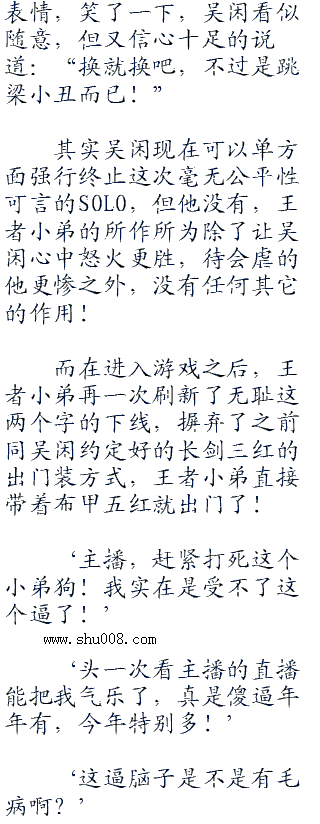 表情，笑了一下，吴闲看似
随意，但又信心十足的说
道：“换就换吧，不过是跳
梁小丑而已！”
其实吴闲现在可以单方
面强行终止这次毫无公平性
可言的SOLO，但他没有，王
者小弟的所作所为除了让吴
闲心中怒火更胜，待会虐的
他更惨之外，没有任何其它
的作用！
而在进入游戏之后，王
者小弟再一次刷新了无耻这
两个字的下线，摒弃了之前
同吴闲约定好的长剑三红的
出门装方式，王者小弟直接
带着布甲五红就出门了！
‘主播，赶紧打死这个
小弟狗！我实在是受不了这
个逼了！’
www.shu008.com
‘头一次看主播的直播
能把我气乐了，真是傻逼年
年有，今年特别多！’
‘这逼脑子是不是有毛
病啊？’